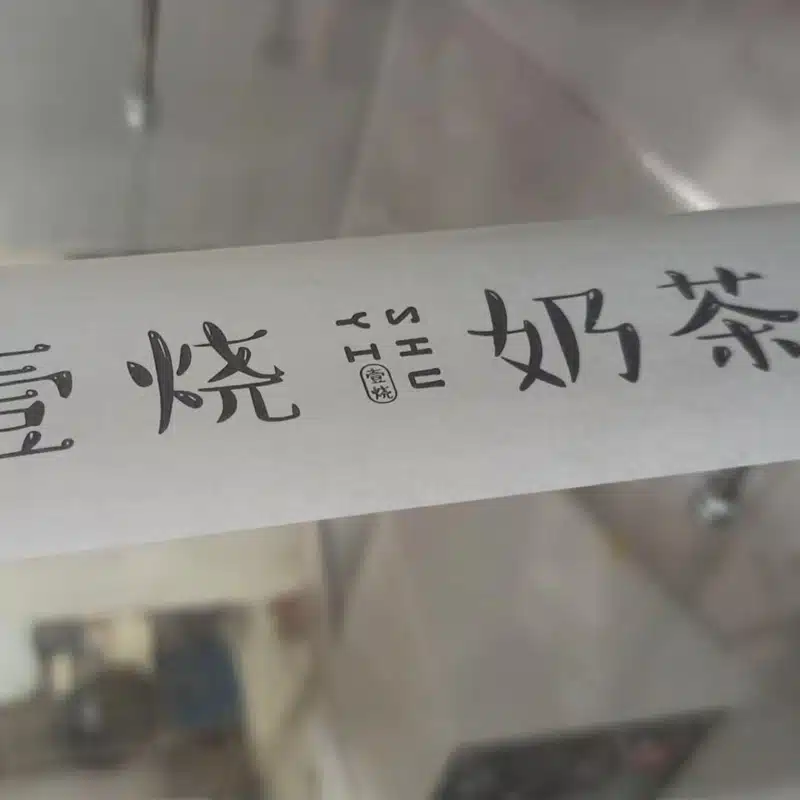 壹烧
SHU
YI
壹烧
奶茶